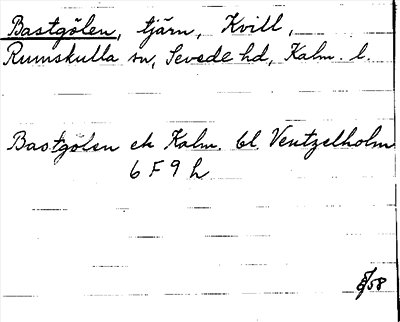 Bastgölen, tjärn, Kvill,
Rumskulla sn, Sevede hd, Kalm. l.
Bastgölen ek Kalm. bl. Ventzelholm
6 F 9 h